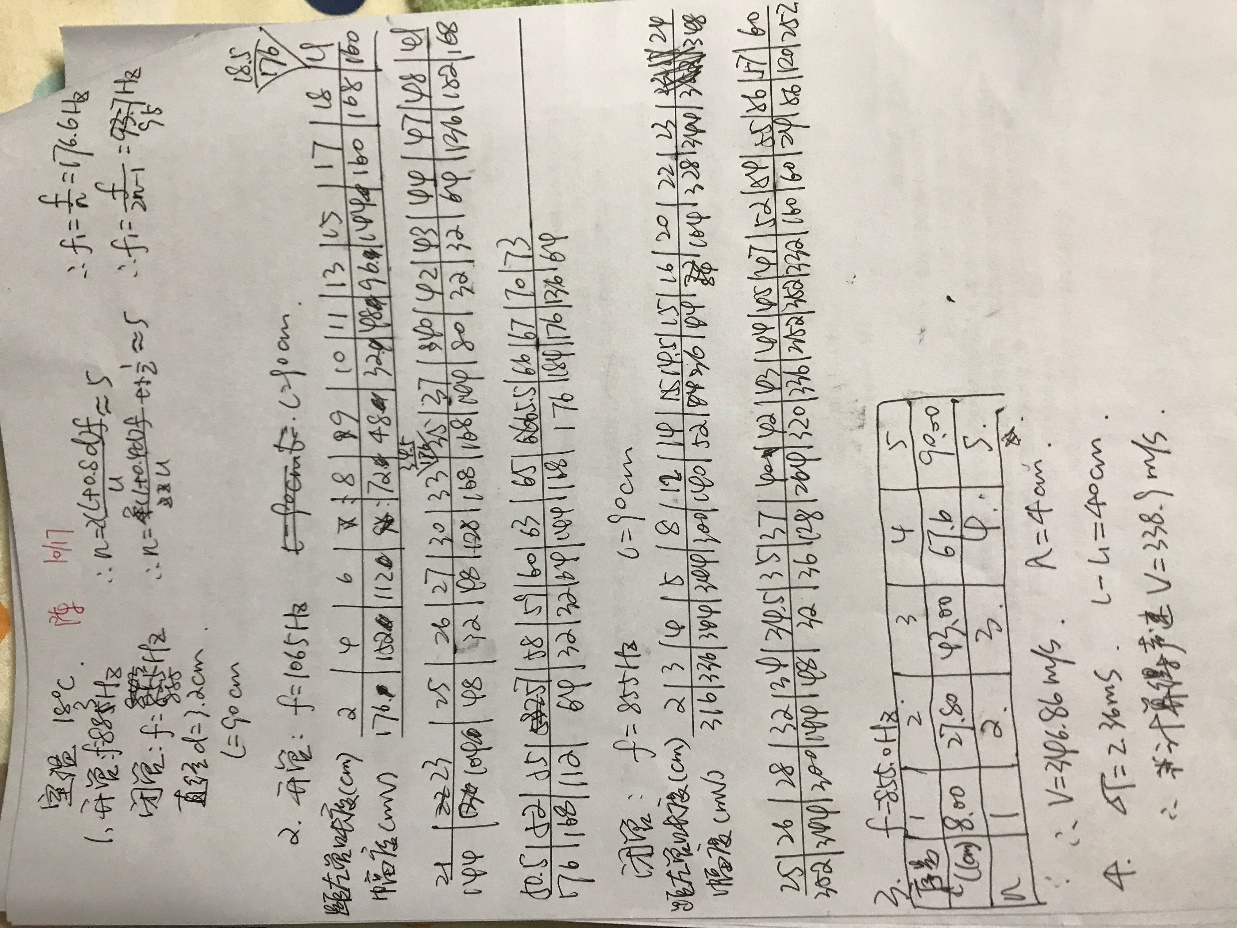 室温 18°C. 10/17
1、开管: f=883Hz ∴n=2(l+0.8d)f/u≈5 ∴f₁=f/n=176.6Hz
闭管: f=855Hz ∴n= ≈5 ∴f₁=f/2n-1=95Hz
直径d=3.2cm.
L=90cm
2. 开管: f=1065Hz L=90cm.
距左管口长度(cm) 2 | 4 | 6 | 8 | 9 | 10 | 11 | 13 | 15 | 17 | 18 | 19
幅度(mV) 176 | 152 | 112 | 72 | 48 | 32 | 48 | 96 | 144 | 160 | 168 | 160
18.5
176
21 | 23 | 25 | 26 | 27 | 30 | 33 | 34.5 | 35 | 37 | 40 | 42 | 43 | 44 | 47 | 48 | 49
144 | 104 | 48 | 32 | 48 | 128 | 168 | 168 | 144 | 80 | 32 | 32 | 64 | 136 | 152 | 168
50.5 | 52 | 55 | 57 | 58 | 59 | 60 | 63 | 65 | 65.5 | 66 | 67 | 70 | 73
176 | 168 | 112 | 64 | 32 | 32 | 64 | 144 | 168 | 176 | 184 | 176 | 136 | 64
闭管: f=855Hz L=90cm
距左管口长度(cm) 2 | 3 | 4 | 5 | 8 | 12 | 14 | 14.5 | 15 | 16 | 20 | 22 | 23 | 24
幅度(mV) 316 | 336 | 344 | 344 | 300 | 140 | 52 | 36 | 44 | 164 | 328 | 344 | 348
25 | 26 | 28 | 32 | 34 | 34.5 | 35 | 37 | 40 | 42 | 43 | 44 | 45 | 47 | 52 | 54 | 55 | 56 | 57 | 60
352 | 344 | 300 | 144 | 48 | 32 | 36 | 128 | 264 | 320 | 336 | 352 | 352 | 332 | 160 | 60 | 24 | 56 | 120 | 252
3. f=855.0Hz
序号 | 1 | 2 | 3 | 4 | 5
L(cm) | 8.00 | 27.80 | 43.00 | 67.6 | 90.00
n | 1 | 2. | 3. | 4. | 5.
∴ V=346.86 m/s. λ=4am.
4. ΔT=2.36ms. L-L1=40cm
∴ 计算得声速 V=338.9 m/s.